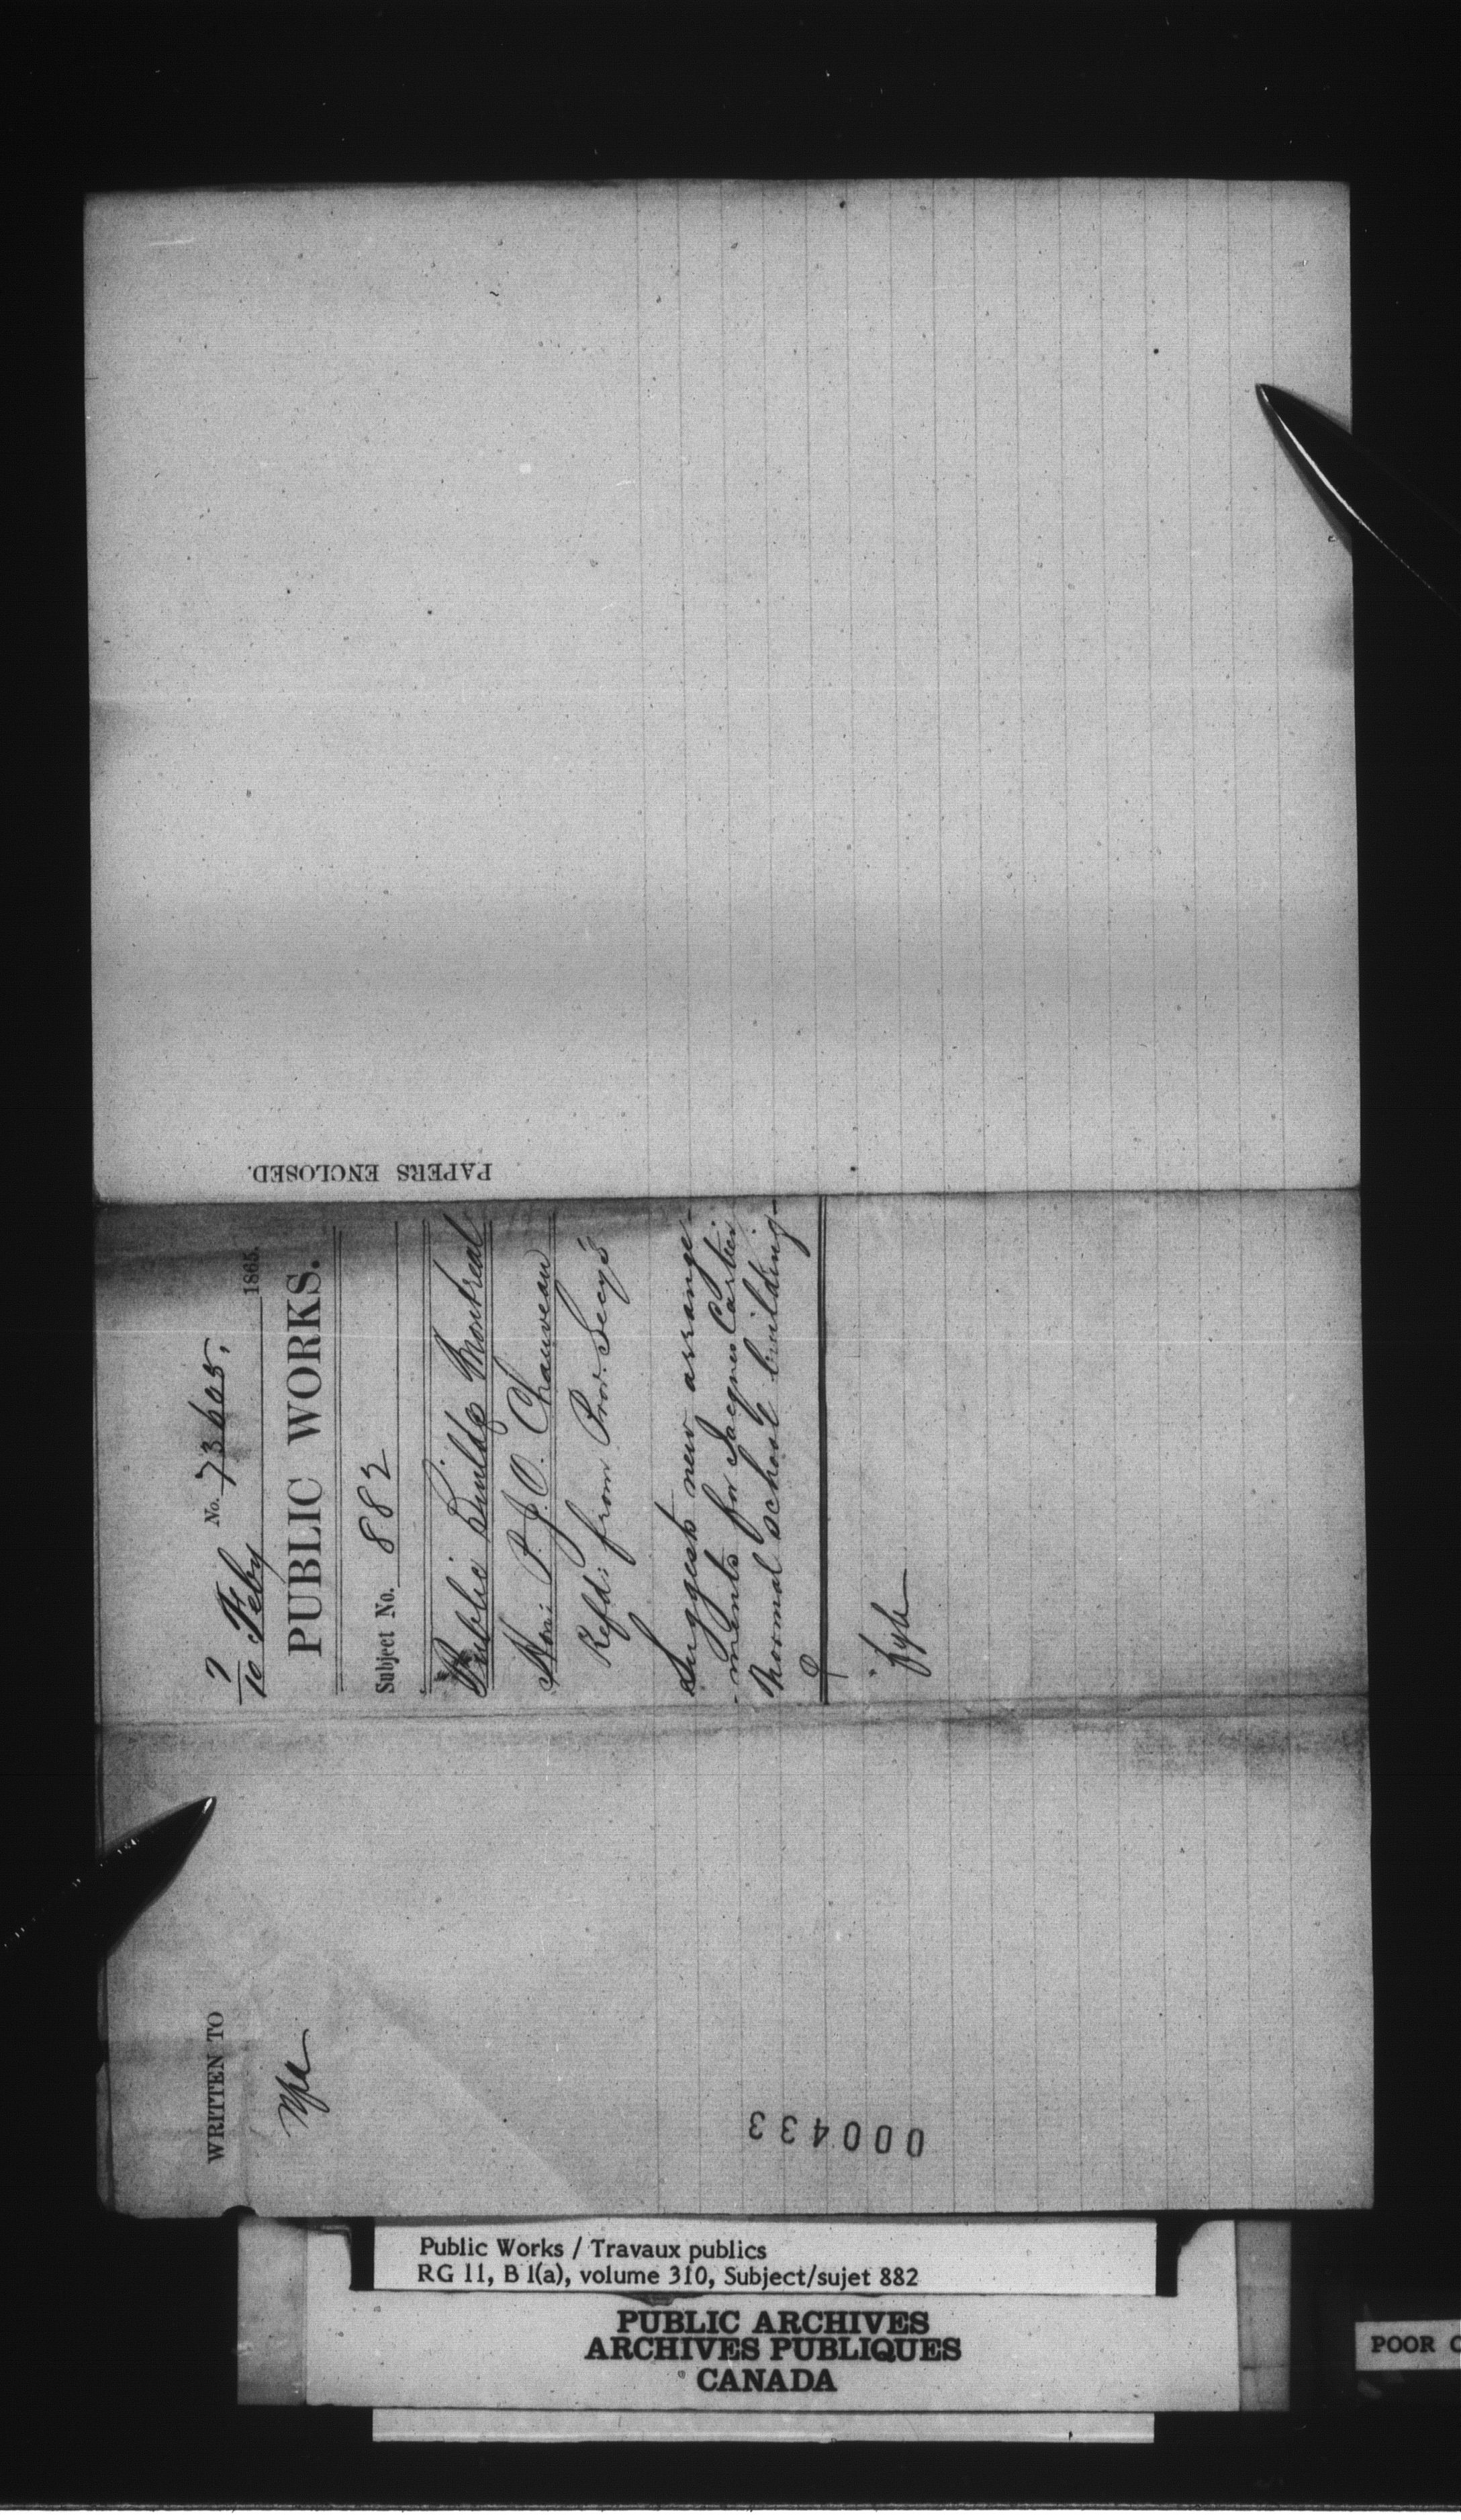 PAPERS ENCLOSED.
No. 73605.
7/10 Feby 1865.
PUBLIC WORKS.
Subject No. 882
Public Buildgs Montreal
Hon: P. J. O. Chauveau
Refd: from Prov. Secy's
Suggests new arrange-
-ments for Jacques Cartier
Normal school building-
fyle
WRITTEN TO
000433
Public Works / Travaux publics
RG 11, B 1(a), volume 310, Subject/sujet 882
PUBLIC ARCHIVES
ARCHIVES PUBLIQUES
CANADA
POOR